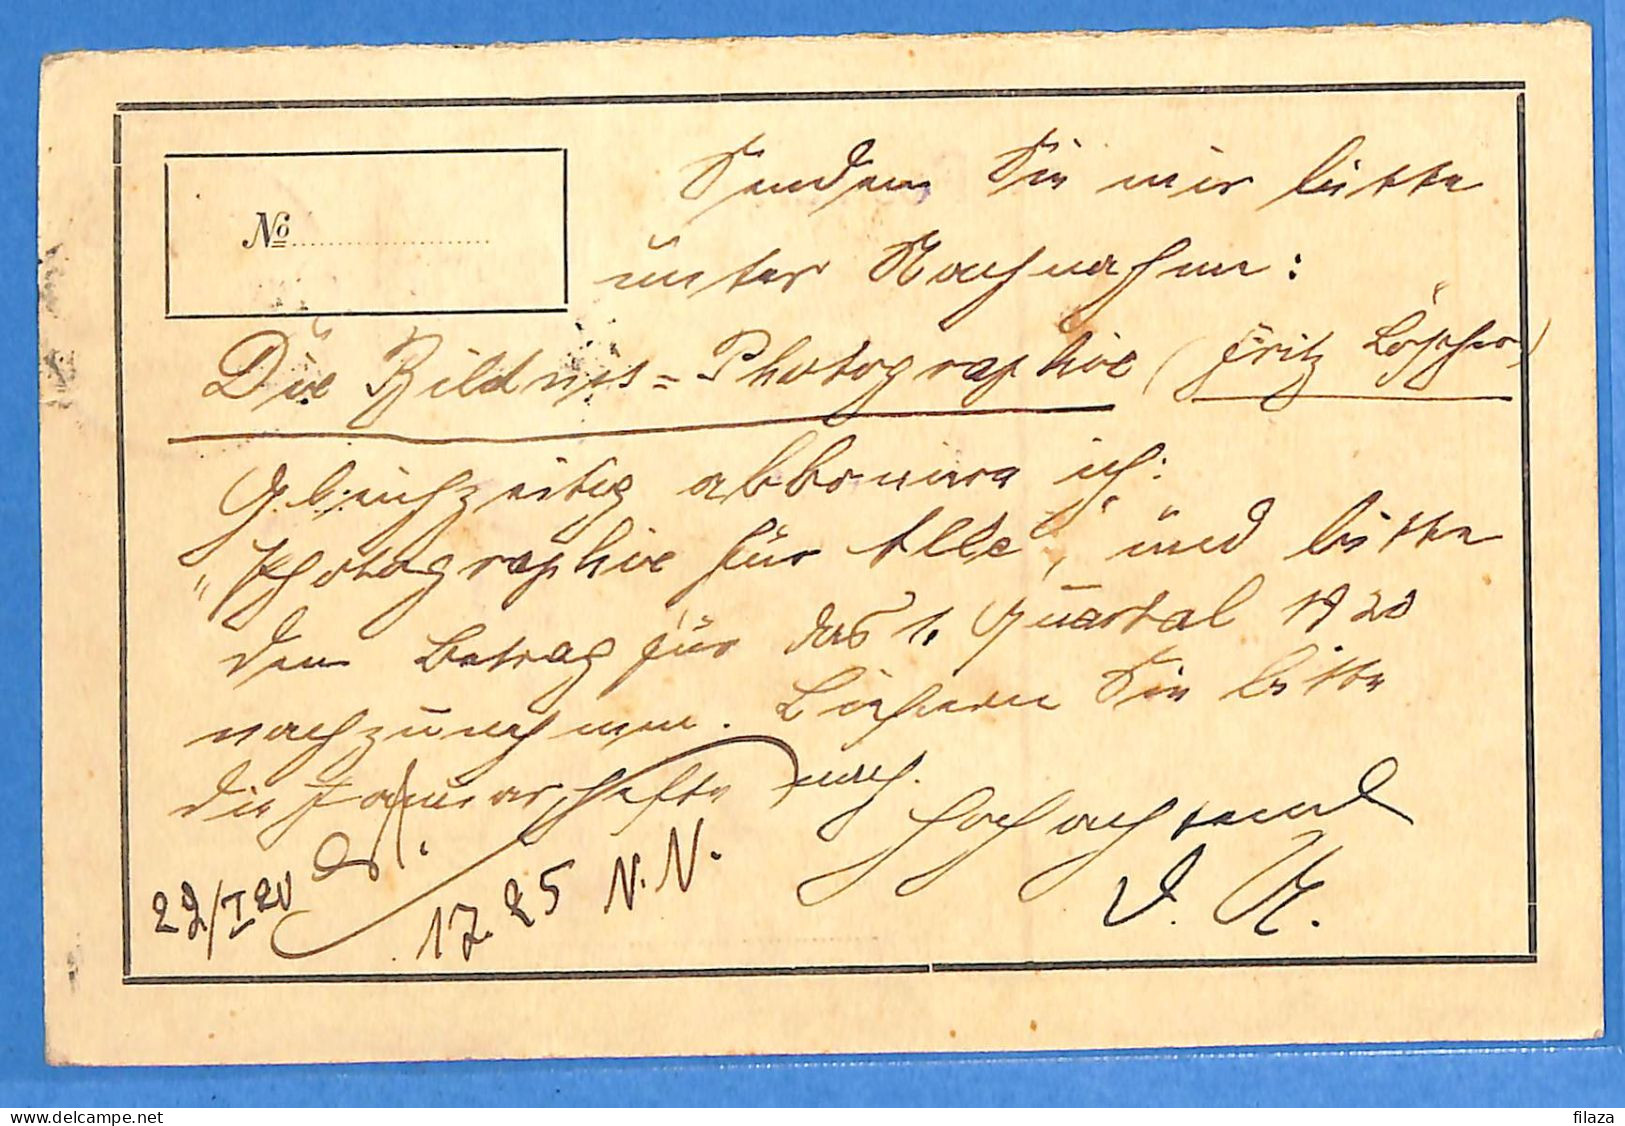 Senden Sie mir bitte
№
unter Nachnahme:
Die Bildnis=Photographie (Fritz Löscher)
Gleichzeitig abboniere ich:
"Photographie für Alle", und bitte
den Betrag für das 1. Quartal 1920
nachzunehmen. Liefern Sie bitte
die Januarhefte nach.
Hochachtend
22/I 20
17.25 N.N.
delcampe.net
filaza